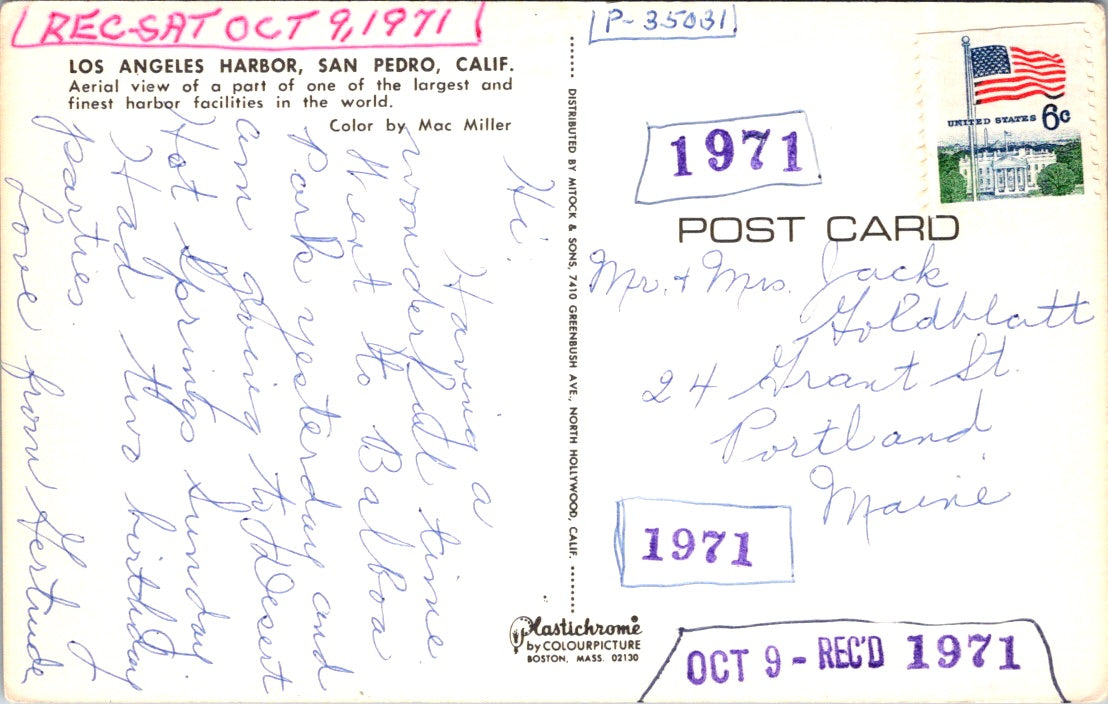 REC-SAT OCT 9, 1971
LOS ANGELES HARBOR, SAN PEDRO, CALIF.
Aerial view of a part of one of the largest and
finest harbor facilities in the world.
Color by Mac Miller
Hi:
Having a
wonderful time.
Went to Balboa
Park yesterday and
am going to Desert
Hot Springs Sunday
Had two birthday
parties.
Love from Gertrude
DISTRIBUTED BY MITOCK & SONS, 7410 GREENBUSH AVE., NORTH HOLLYWOOD, CALIF.
Plastichrome
by COLOURPICTURE
BOSTON, MASS. 02130
P-35031
UNITED STATES 6c
1971
POST CARD
Mr. + Mrs. Jack
Goldblatt
24 Grant St.
Portland
Maine
1971
OCT 9 - REC'D 1971